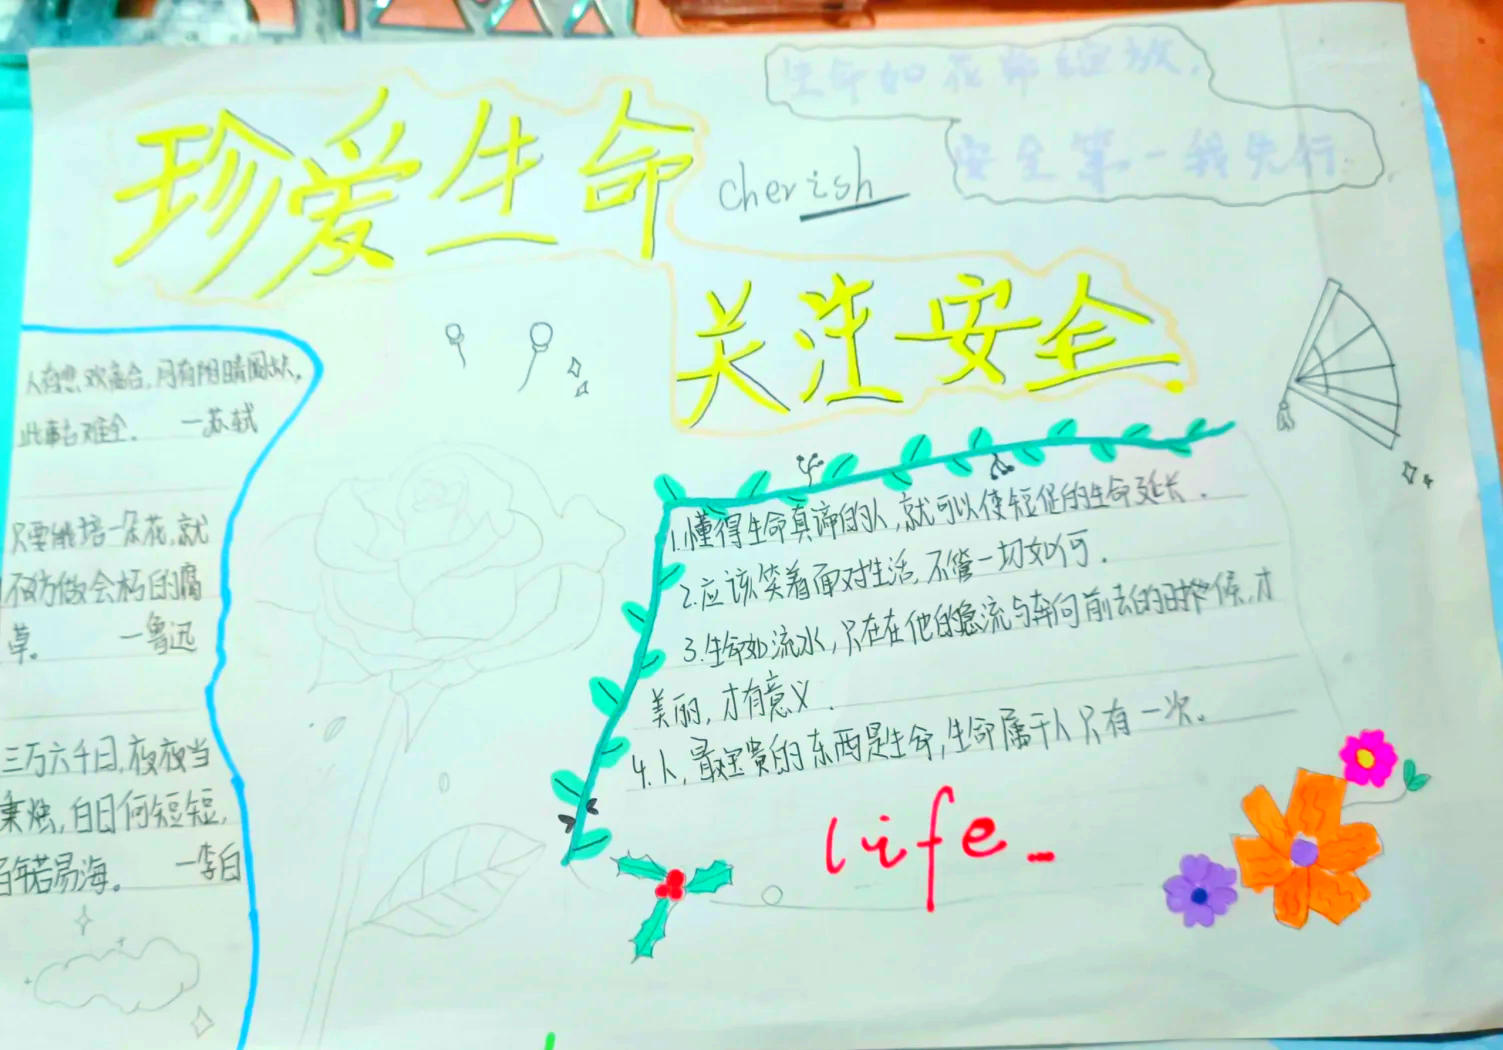 珍爱生命
cherish
生命如花那绽放,
安全第一我先行.
关注安全
人有悲欢离合,月有阴晴圆缺,
此事古难全. —苏轼
只要能培一朵花,就
不妨做会朽的腐
草。 —鲁迅
三万六千日,夜夜当
秉烛,白日何短短,
百年苦易海。 —李白
1.懂得生命真谛的人,就可以使短促的生命延长.
2.应该笑着面对生活,不管一切如何.
3.生命如流水,只在在他的急流与奔向前去的时候,才
美丽,才有意义.
4.人,最宝贵的东西是生命,生命属于人只有一次。
life